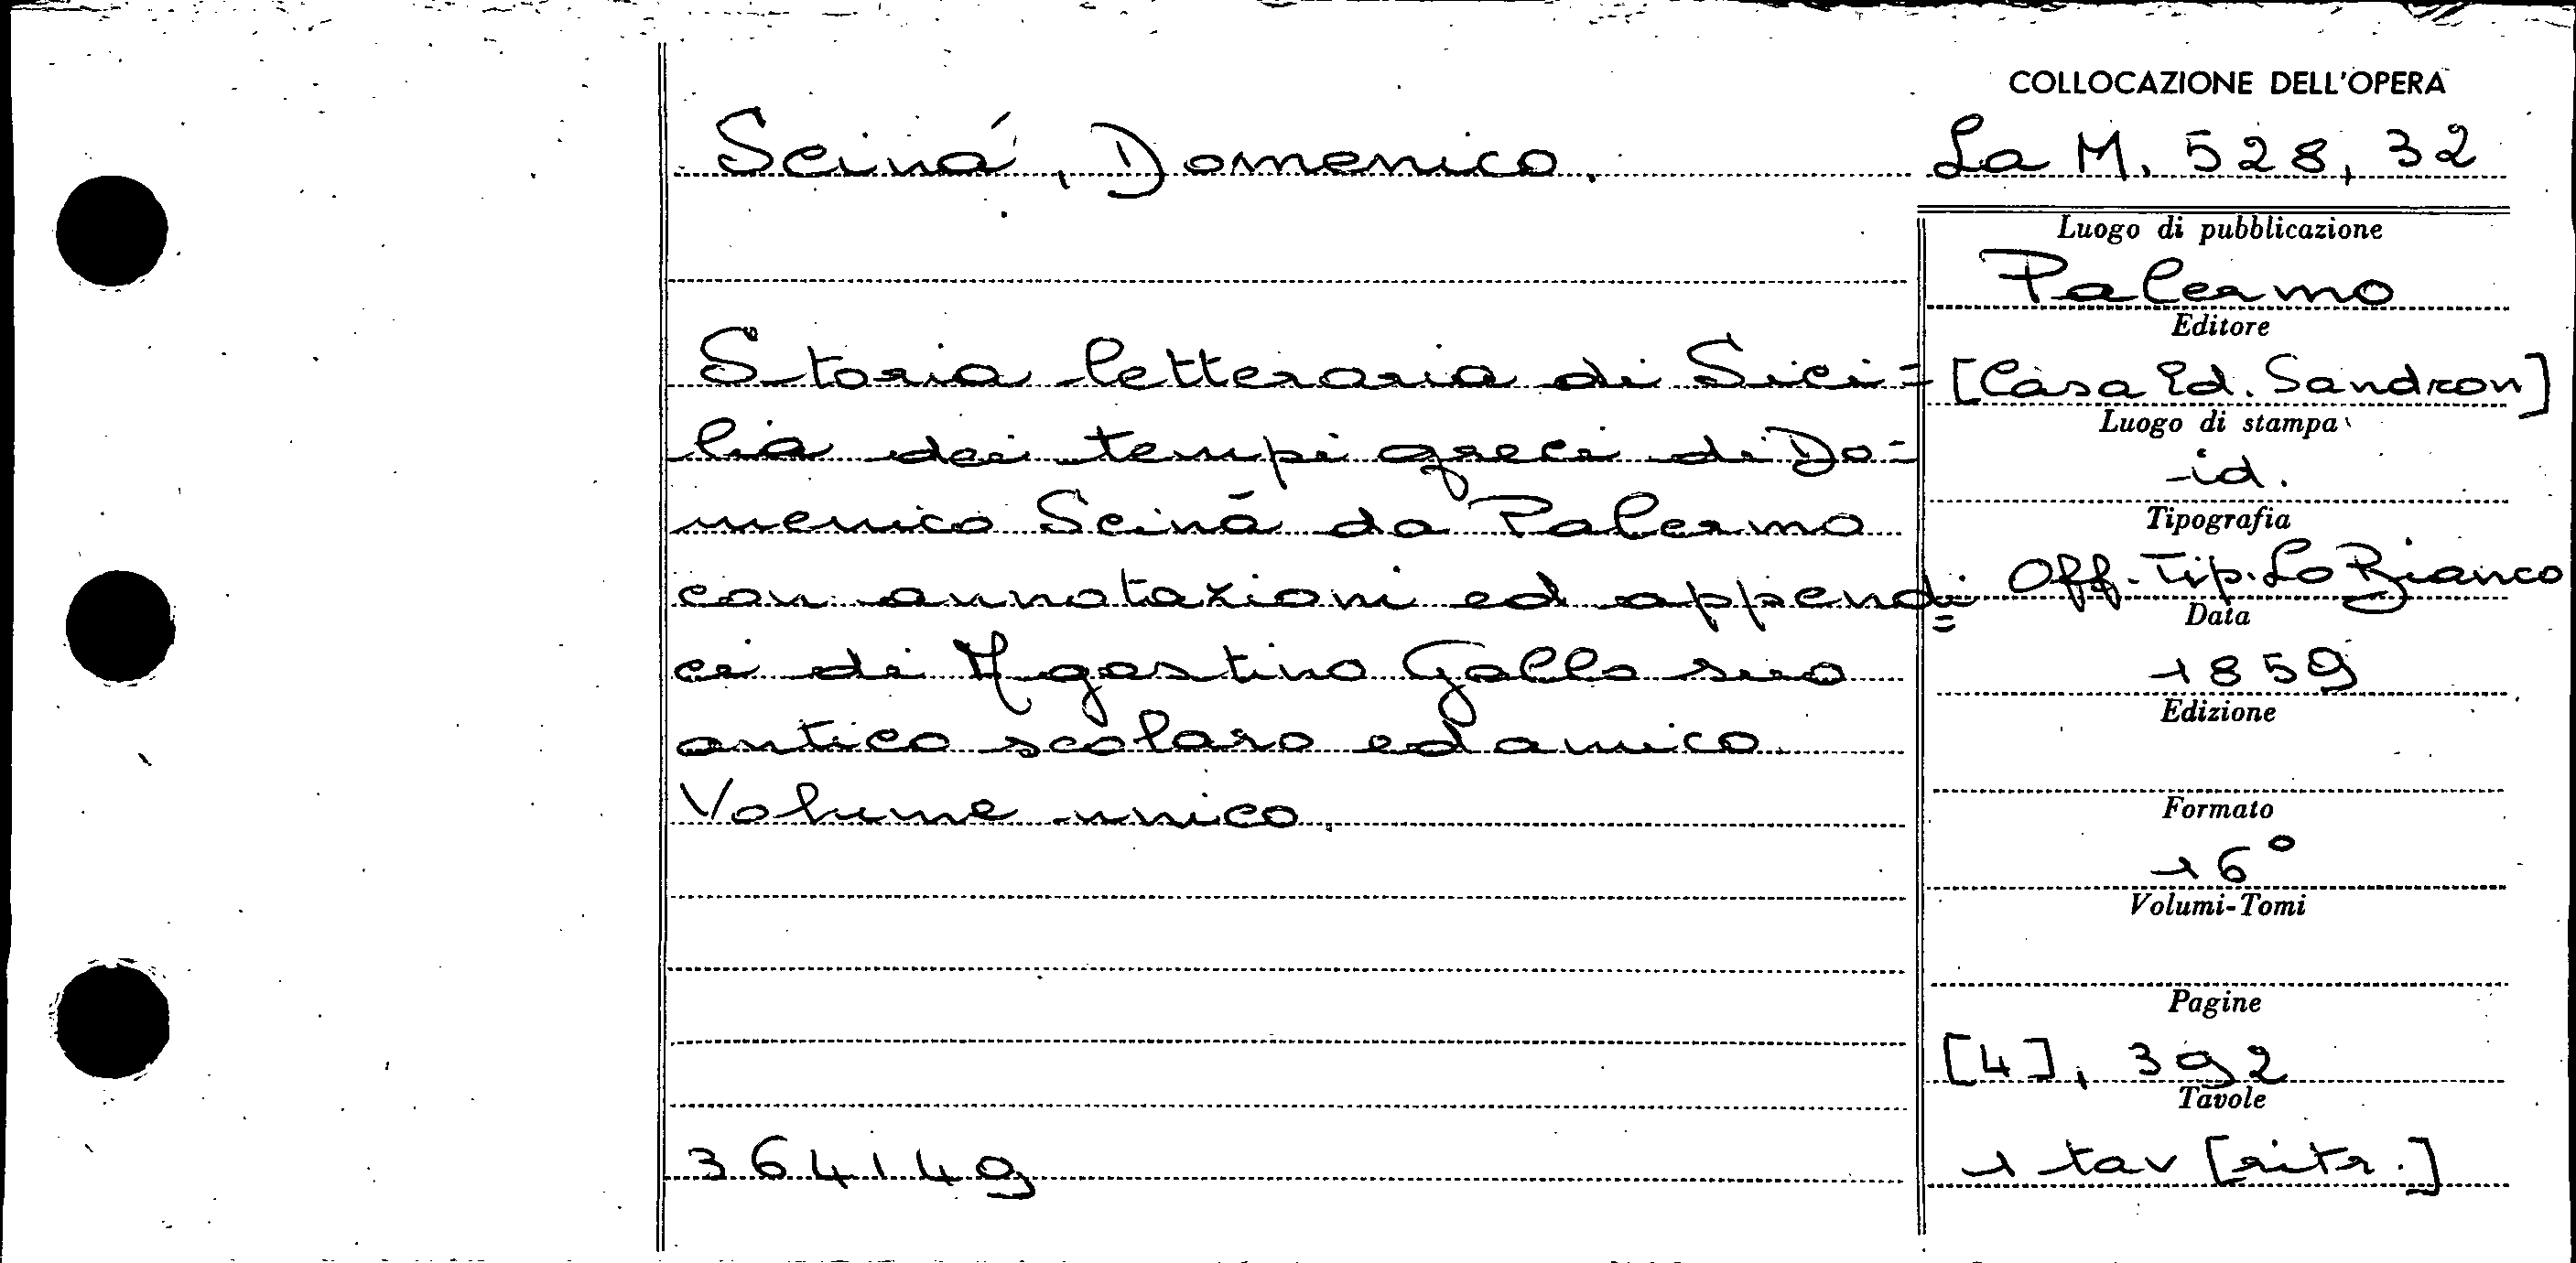 COLLOCAZIONE DELL'OPERA
Scinà, Domenico.
La M. 528, 32
Storia letteraria di Sici=
lia dei tempi greci di Do=
menico Scinà da Palermo
con annotazioni ed appendi=
ci di Agostino Gallo suo
antico scolaro ed amico.
Volume unico.
364149
Luogo di pubblicazione
Palermo
Editore
[Casa Ed. Sandron]
Luogo di stampa
id.
Tipografia
Off. Tip. Lo Bianco
Data
1859
Edizione
Formato
16°
Volumi-Tomi
Pagine
[4], 392
Tavole
1 tav [ritr.]